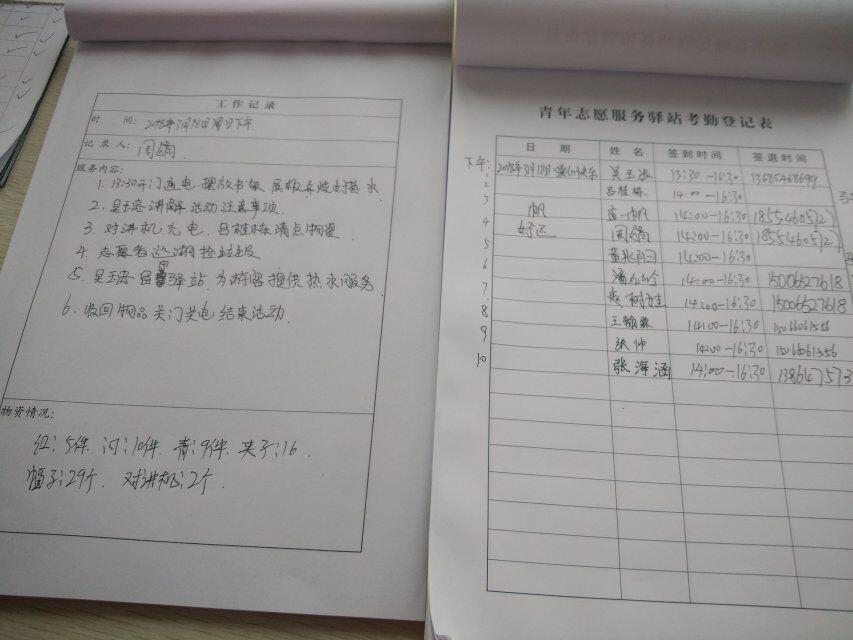 工作记录
时 间: 2018年3月18日周日下午
记录人: 周娟
服务内容:
1. 13:30开门通电 摆放书架 展板 并烧好热水
2. 吴玉忠讲解活动注意事项
3. 对讲机充电、吕桂栋清点物资
4. 志愿者巡湖捡垃圾
5. 吴玉忠留守驿站 为游客提供热水服务
6. 收回物品 关门关电 结束活动.
物资情况:
红:5件. 河:10件. 青:9件. 夹子:16
帽子:29个. 对讲机:2个.
青年志愿服务驿站考勤登记表
日 期 姓 名 签到时间 签退时间
下午: 2018年3月18日 吴玉忠 13:30—16:30 13685468699
2 吕桂栋 14:00—16:30
3 帆 一帆 14:00—16:30
4 好运 周娟 14:00—16:30
5
6 14:00—16:30 15006527618
7 14:00—16:30 15006527618
8 王翰霖 14:00—16:30
9 张帅 14:00—16:30
10 张海涵 14:00—16:30